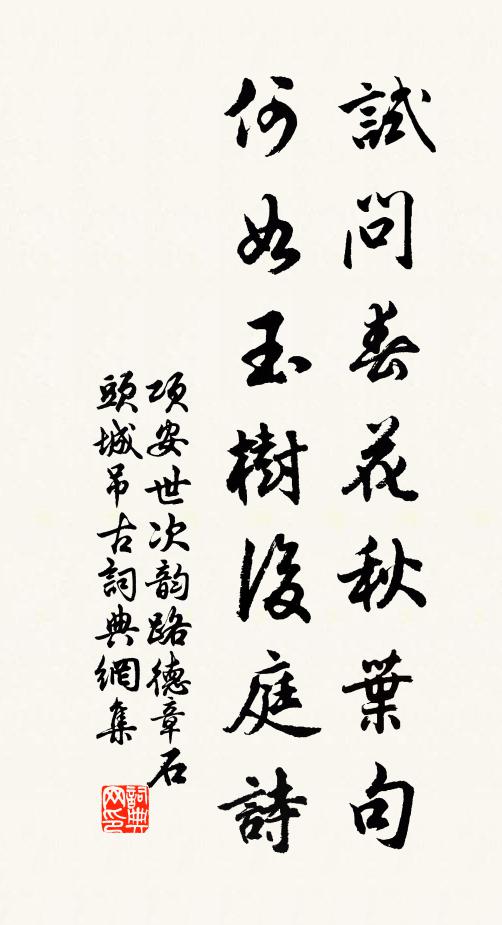 試問春花秋葉句
何如玉樹後庭詩
項安世次韵路德章石
頭城吊古詞典網集
詞典
网印